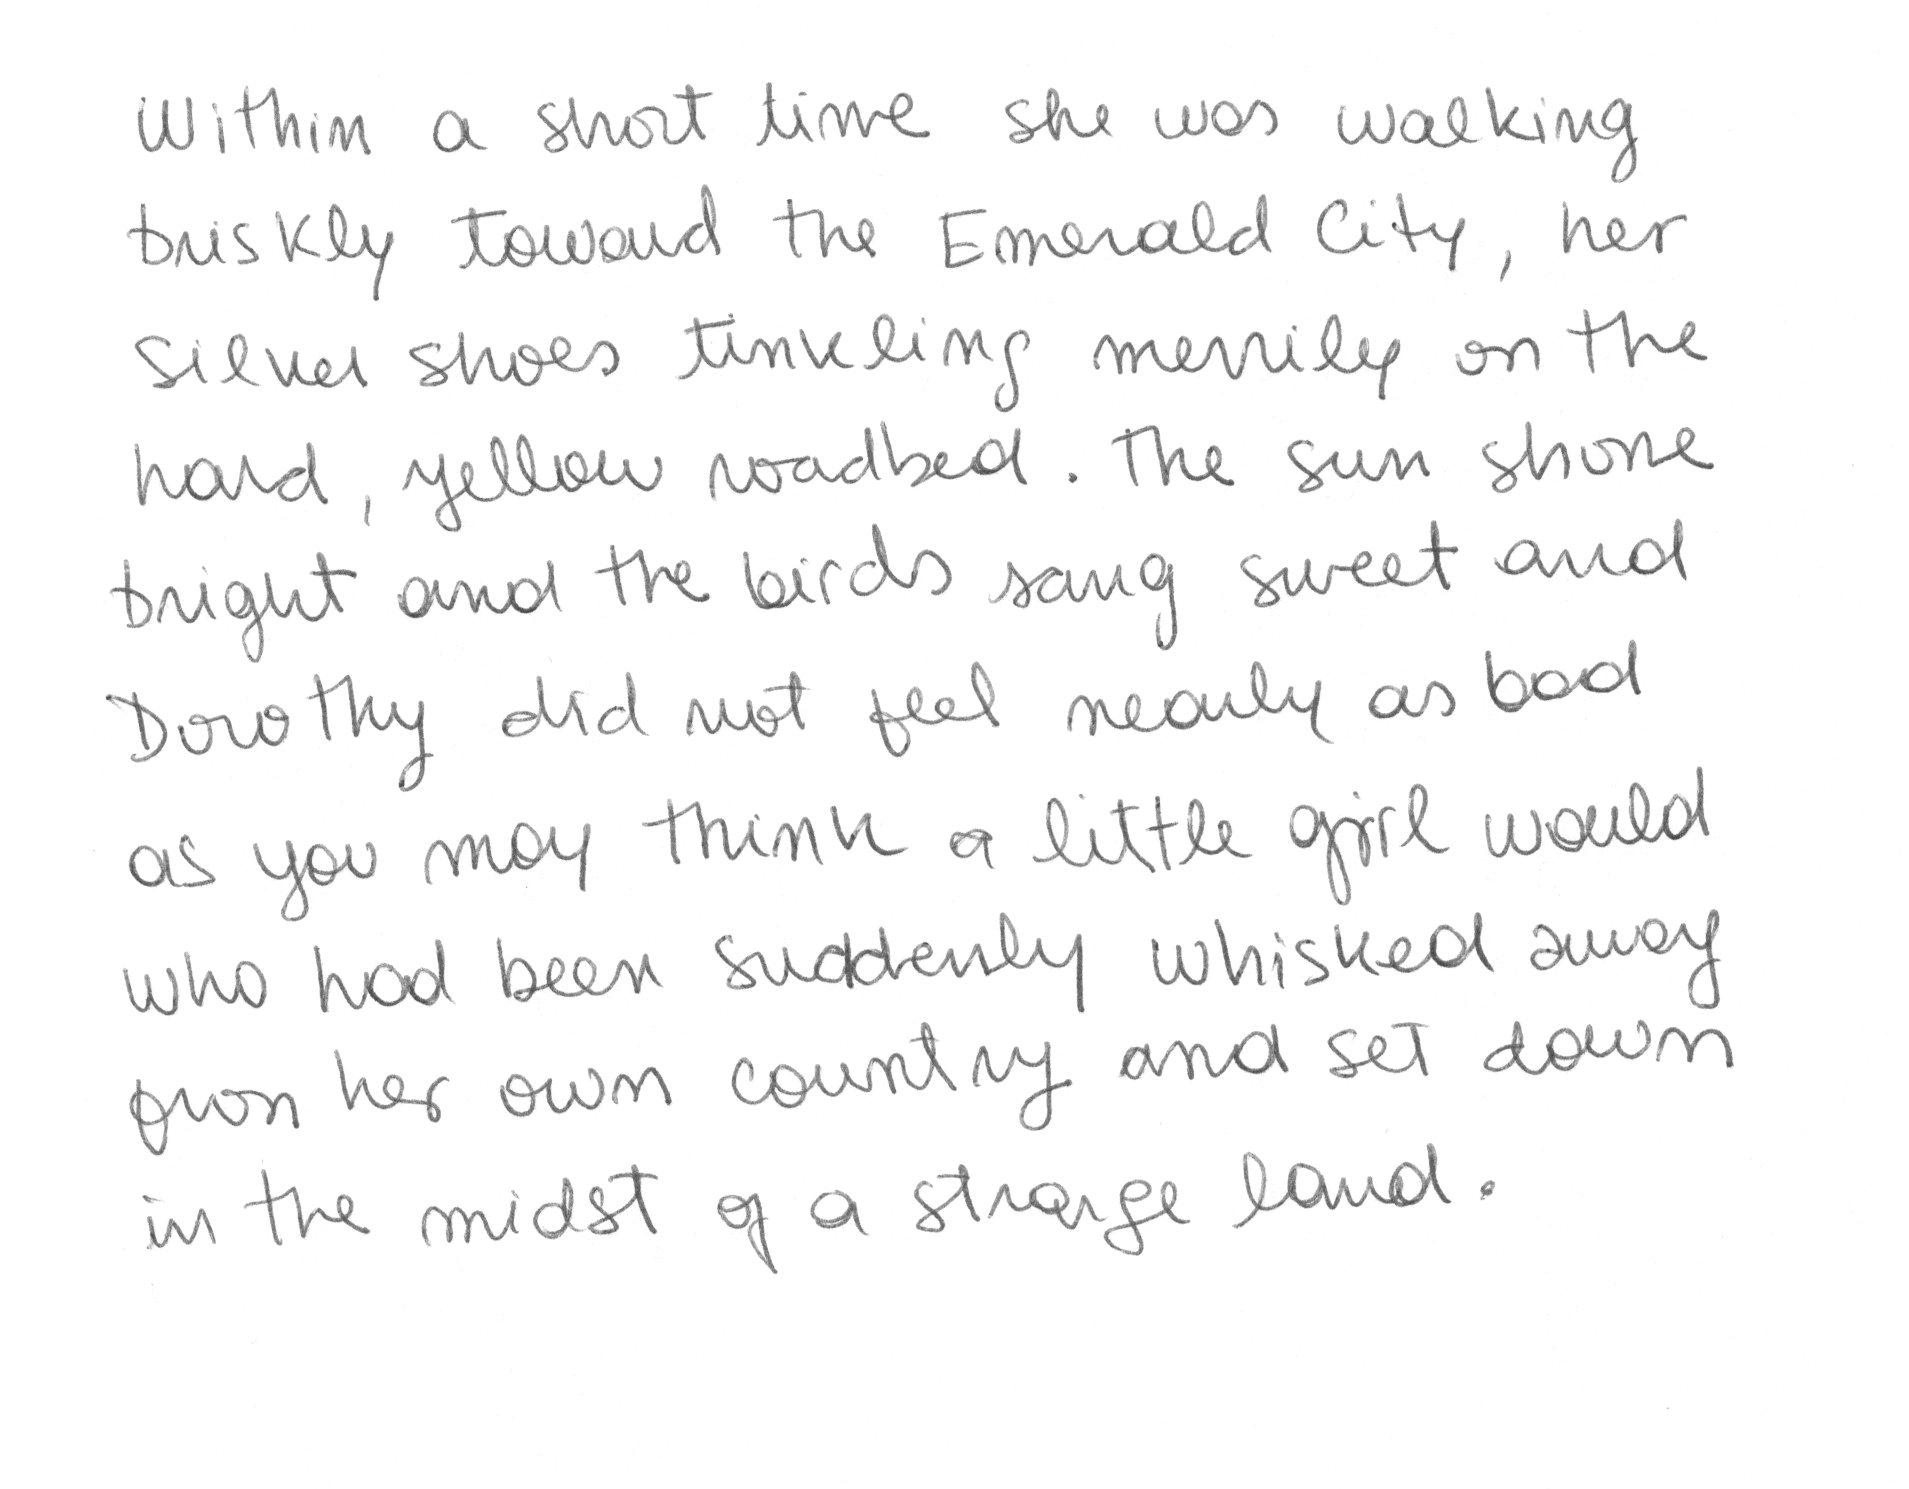 Within a short time she was walking
briskly toward the Emerald City, her
silver shoes tinkling merrily on the
hard, yellow roadbed. The sun shone
bright and the birds sang sweet and
Dorothy did not feel nearly as bad
as you may think a little girl would
who had been suddenly whisked away
from her own country and set down
in the midst of a strange land.